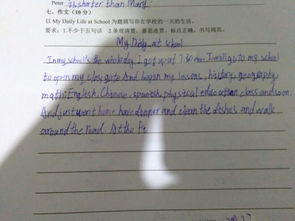 Peter is shorter than Mary.
七、作文（10分）
以 My Daily Life at School 为题描写你在学校的一天的生活。
要求：1.不少于五句话 2.条理清楚，意思连贯，标点正确，书写规范。
My Daily at school
In my school's the whole day. I get up at 7:30 am. I will go to my school
to open my class gate And began my lessons, history, geography
math English. Chinese, spanish, physical education class and soon.
And just went home have dinner and clean the dishes and walk
around the road. At the